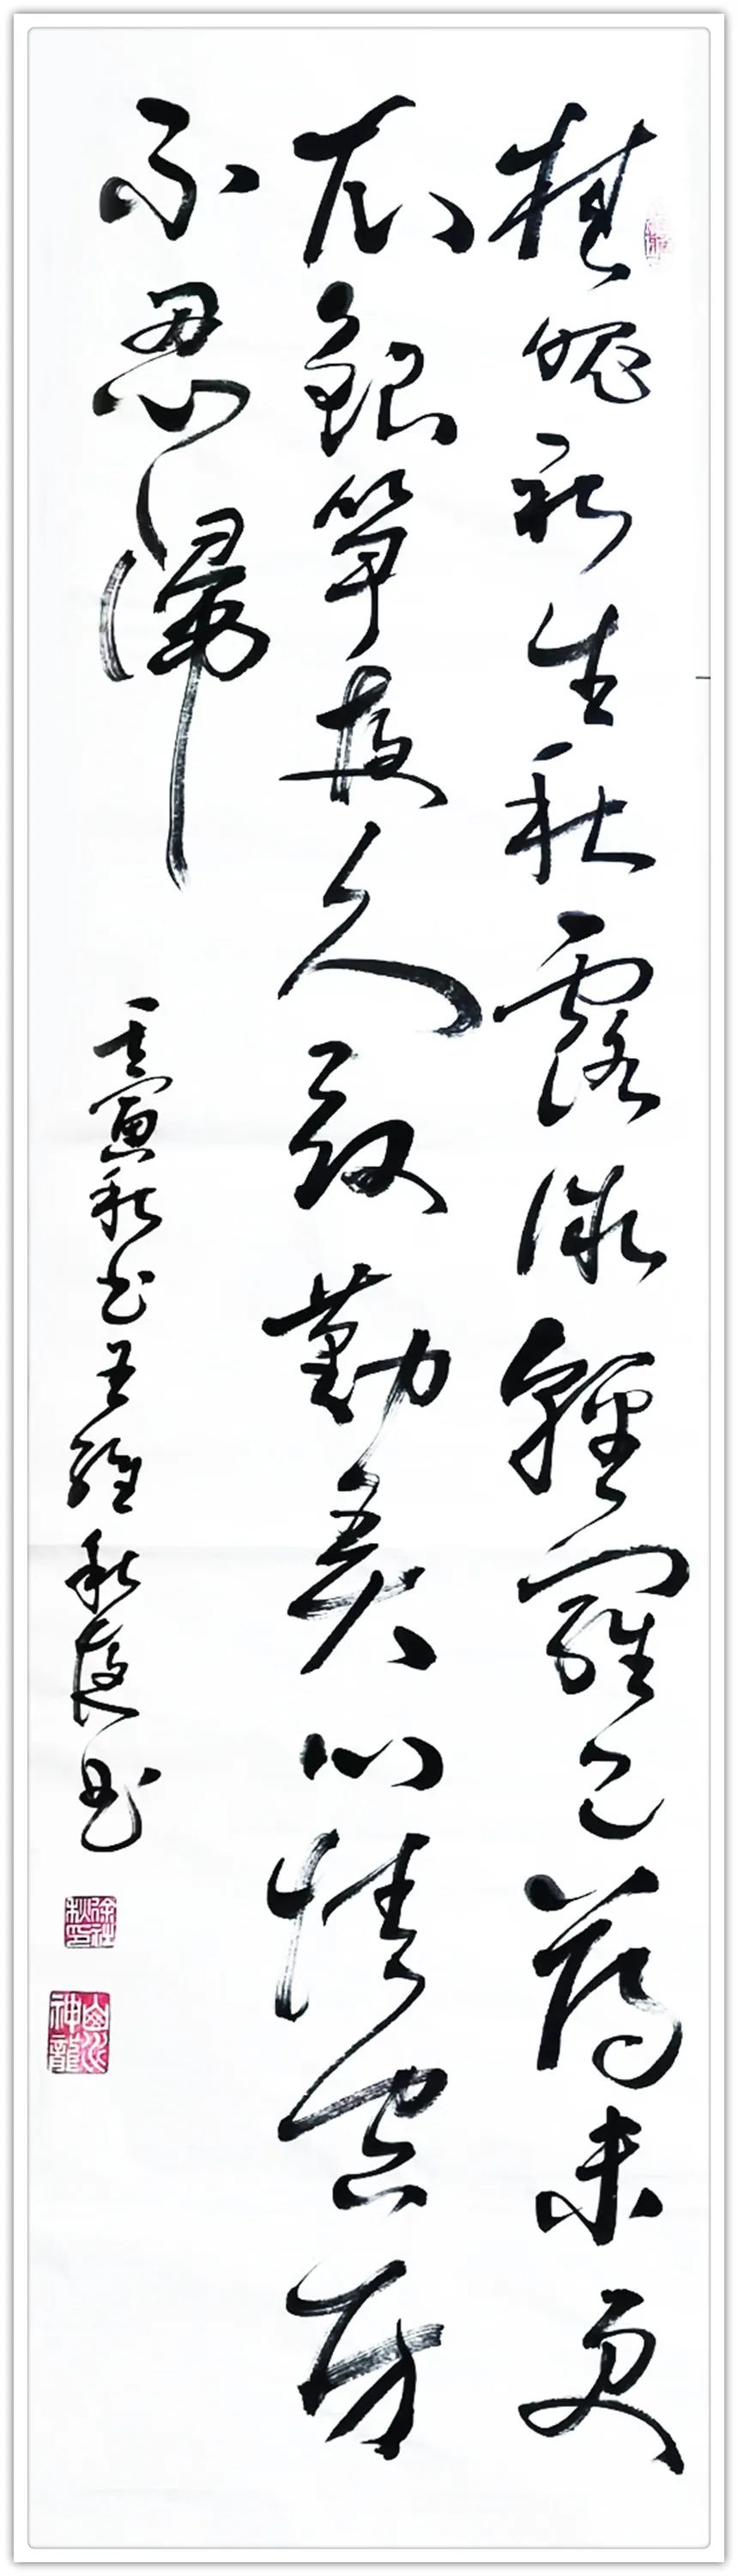 桂魄初生秋露微輕羅已薄未更
衣銀筝夜久殷勤弄心怯空房
不忍歸
壬寅秋书王維秋夜曲
神龍